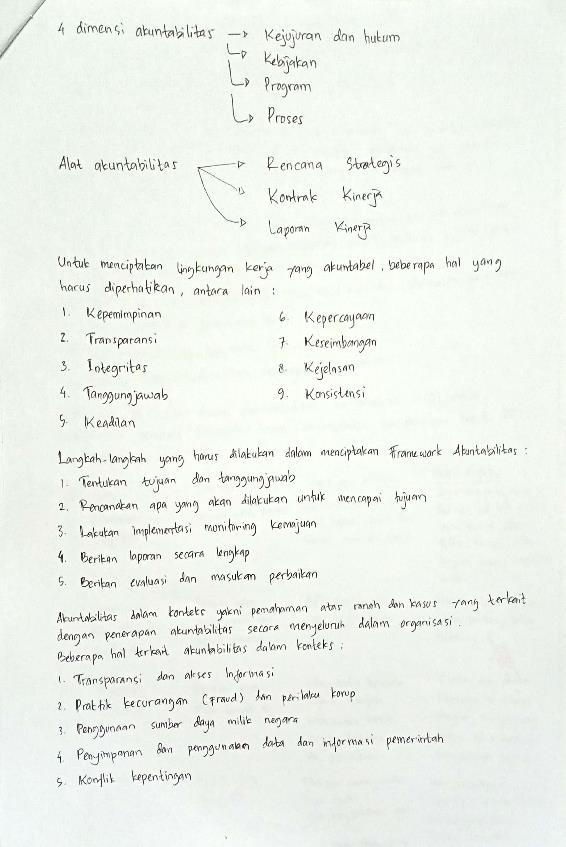 4 dimensi akuntabilitas → Kejujuran dan hukum
Kebijakan
Program
Proses
Alat akuntabilitas → Rencana Strategis
Kontrak Kinerja
Laporan Kinerja
Untuk menciptakan lingkungan kerja yang akuntabel, beberapa hal yang
harus diperhatikan, antara lain :
1. Kepemimpinan
2. Transparansi
3. Integritas
4. Tanggungjawab
5. Keadilan
6. Kepercayaan
7. Keseimbangan
8. Kejelasan
9. Konsistensi
Langkah-langkah yang harus dilakukan dalam menciptakan Framework Akuntabilitas :
1. Tentukan tujuan dan tanggungjawab
2. Rencanakan apa yang akan dilakukan untuk mencapai tujuan
3. Lakukan implementasi monitoring kemajuan
4. Berikan laporan secara lengkap
5. Berikan evaluasi dan masukan perbaikan
Akuntabilitas dalam konteks yakni pemahaman atas ranah dan kasus yang terkait
dengan penerapan akuntabilitas secara menyeluruh dalam organisasi.
Beberapa hal terkait akuntabilitas dalam konteks :
1. Transparansi dan akses Informasi
2. Praktik kecurangan (Fraud) dan perilaku korup
3. Penggunaan sumber daya milik negara
4. Penyimpanan dan penggunaan data dan informasi pemerintah
5. Konflik kepentingan